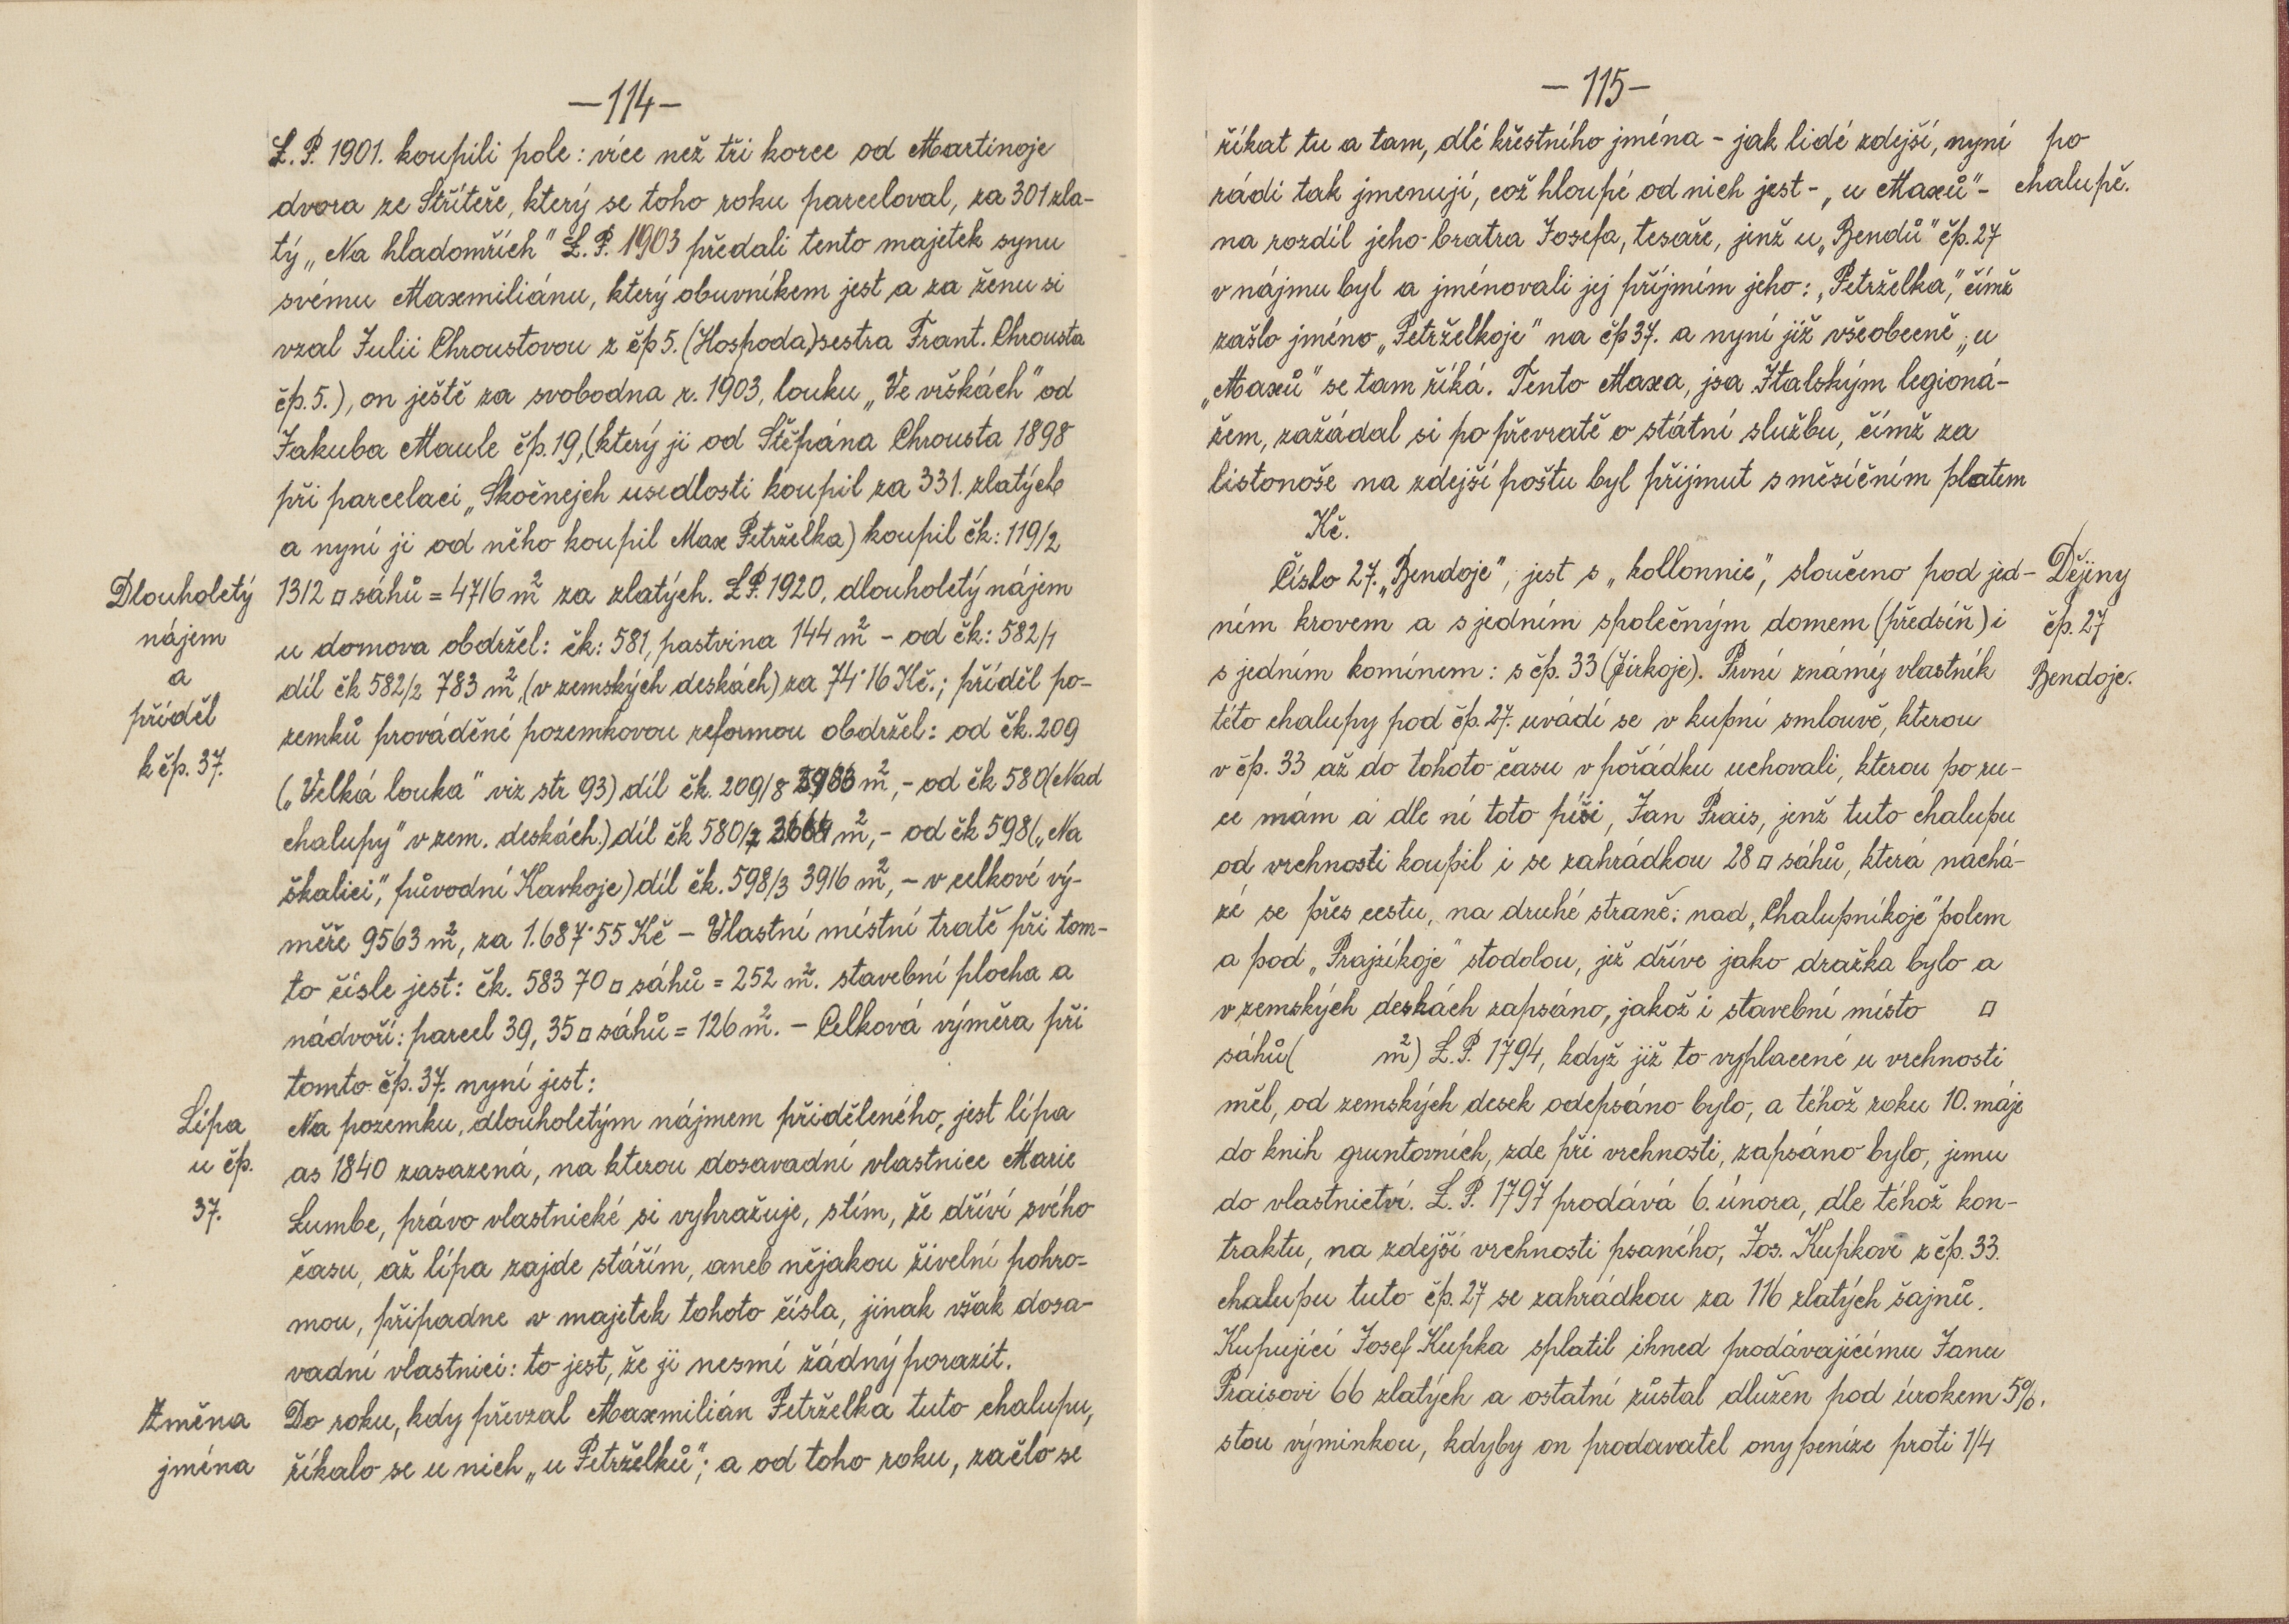 —114—
L. P. 1901. koupili pole: více než tři korce od Martinoje
dvora ze Střítěře, který se toho roku parceloval, za 301 zla-
tý „Na hladomřích" L. P. 1903 předali tento majetek synu
svému Maxmiliánu, který obuvníkem jest a za ženu si
vzal Julii Chroustovou z čp 5. (Hospoda) sestra Frant. Chrousta
čp. 5.), on ještě za svobodna r. 1903, louku „Ve vrškách" od
Jakuba Maule čp. 19, (který ji od Štěpána Chrousta 1898
při parcelaci „Skočnejch usedlosti koupil za 331. zlatých
a nyní ji od něho koupil Max Petrželka) koupil čk: 119/2
Dlouholetý
nájem
a
příděl
k čp. 37.
1312 □ sáhů = 4716 m² za zlatých. L.P. 1920, dlouholetý nájem
u domova obdržel: čk: 581, pastvina 144 m² - od čk: 582/1
díl čk 582/2 783 m², (v zemských deskách) za 74·16 Kč.; příděl po-
zemků prováděné pozemkovou reformou obdržel: od čk. 209
(„Velká louka" viz str 93) díl čk. 209/8 m², - od čk 580 (Nad
chalupy" v zem. deskách.) díl čk 580/ m², - od čk 598 („Na
škalici", původní Kavkoje) díl čk. 598/3 3916 m², - v celkové vý-
měře 9563 m², za 1.687·55 Kč - Vlastní místní tratě při tom-
to čísle jest: čk. 583 70 □ sáhů = 252 m². stavební plocha a
nádvoří: parcel 39, 35 □ sáhů = 126 m². - Celková výměra při
tomto čp. 37. nyní jest:
Lípa
u čp.
37.
Na pozemku, dlouholetým nájmem přiděleného, jest lípa
as 1840 zasazená, na kterou dosavadní vlastnice Marie
Lumbe, právo vlastnické si vyhražuje, stím, že dříví svého
času, až lípa zajde stářím, aneb nějakou živelní pohro-
mou, připadne v majetek tohoto čísla, jinak však dosa-
vadní vlastnici: to jest, že ji nesmí žádný porazit.
Změna
jména
Do roku, kdy převzal Maxmilián Petrželka tuto chalupu,
říkalo se u nich „u Petrželků"; a od toho roku, začlo se
—115—
říkat tu a tam, dlé křestního jména - jak lidé zdejší, nyní
rádi tak jmenují, což hloupé od nich jest - „u Maxů" -
po
chalupě.
na rozdíl jeho bratra Josefa, tesaře, jenž u „Bendů" čp. 27
v nájmu byl a jménovali jej příjmím jeho: „Petrželka", čímž
zašlo jméno „Petrželkoje" na čp 37. a nyní již všeobecně „u
„Maxů" se tam říká. Tento Maxa, jsa Italským legioná-
řem, zažádal si po převratě o státní službu, čímž za
listonoše na zdejší poštu byl přijmut s měsíčním platem
Kč.
Číslo 27. „Bendoje", jest s „kollonnie", sloučeno pod jed-
ním krovem a s jedním společným domem (předsíň) i
s jedním komínem: s čp. 33 (Jirkoje). První známý vlastník
Dějiny
čp. 27
Bendoje.
této chalupy pod čp. 27. uvádí se v kupní smlouvě, kterou
v čp. 33 až do tohoto času v pořádku uchovali, kterou po ru-
ce mám a dle ní toto píši, Jan Prais, jenž tuto chalupu
od vrchnosti koupil i se zahrádkou 28 □ sáhů, která nachá-
zé se přes cestu, na druhé straně: nad „Chalupníkoje" polem
a pod „Prajzíkoje" stodolou, již dříve jako dražka bylo a
v zemských deskách zapsáno, jakož i stavební místo □
sáhů ( m²) L. P. 1794, když již to vyplacené u vrchnosti
měl, od zemských desek odepsáno bylo, a téhož roku 10. máje
do knih gruntovních, zde při vrchnosti, zapsáno bylo, jemu
do vlastnictví. L. P. 1797 prodává 6. února, dle téhož kon-
traktu, na zdejší vrchnosti psaného, Jos. Kupkovi z čp. 33.
chalupu tuto čp. 27 se zahrádkou za 116 zlatých šajnů.
Kupující Josef Kupka splatil ihned prodávajícímu Janu
Praisovi 66 zlatých a ostatní zůstal dlužen pod úrokem 5%.
stou výminkou, kdyby on prodavatel ony peníze proti 1/4